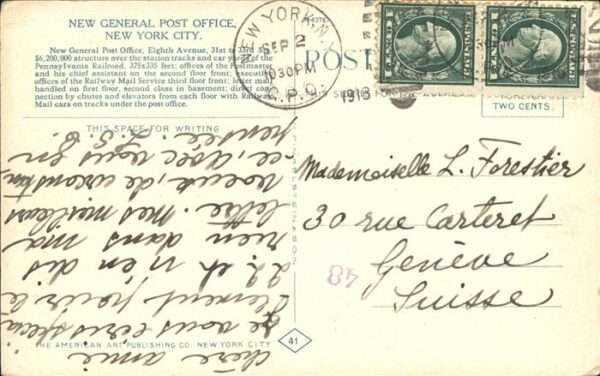 NEW GENERAL POST OFFICE,
NEW YORK CITY.
New General Post Office, Eighth Avenue, 31st to 33rd
$6,200,000 structure over the station tracks and car
Pennsylvania Railroad. 375x335 feet; offices of the Postmaster
and his chief assistant on the second floor front; executive
offices of the Railway Mail Service third floor front; letter mail
handled on first floor, second class in basement; direct con-
nection by chutes and elevators from each floor with Railway
Mail cars on tracks under the post office.
NEW YORK, N.Y.
SEP 2
1030PM
G.P.O.
1918
POST
TWO CENTS.
THIS SPACE FOR WRITING
Chère amie
Je vous écris
pour le
22 et n'en dis
rien dans ma
lettre. Mes meilleurs
voeux, de circonstan-
ce, avec vous en
pensée. L. E.
Mademoiselle L. Forestier
30 rue Carteret
Genève
Suisse
48
THE AMERICAN ART PUBLISHING CO. NEW YORK CITY
41